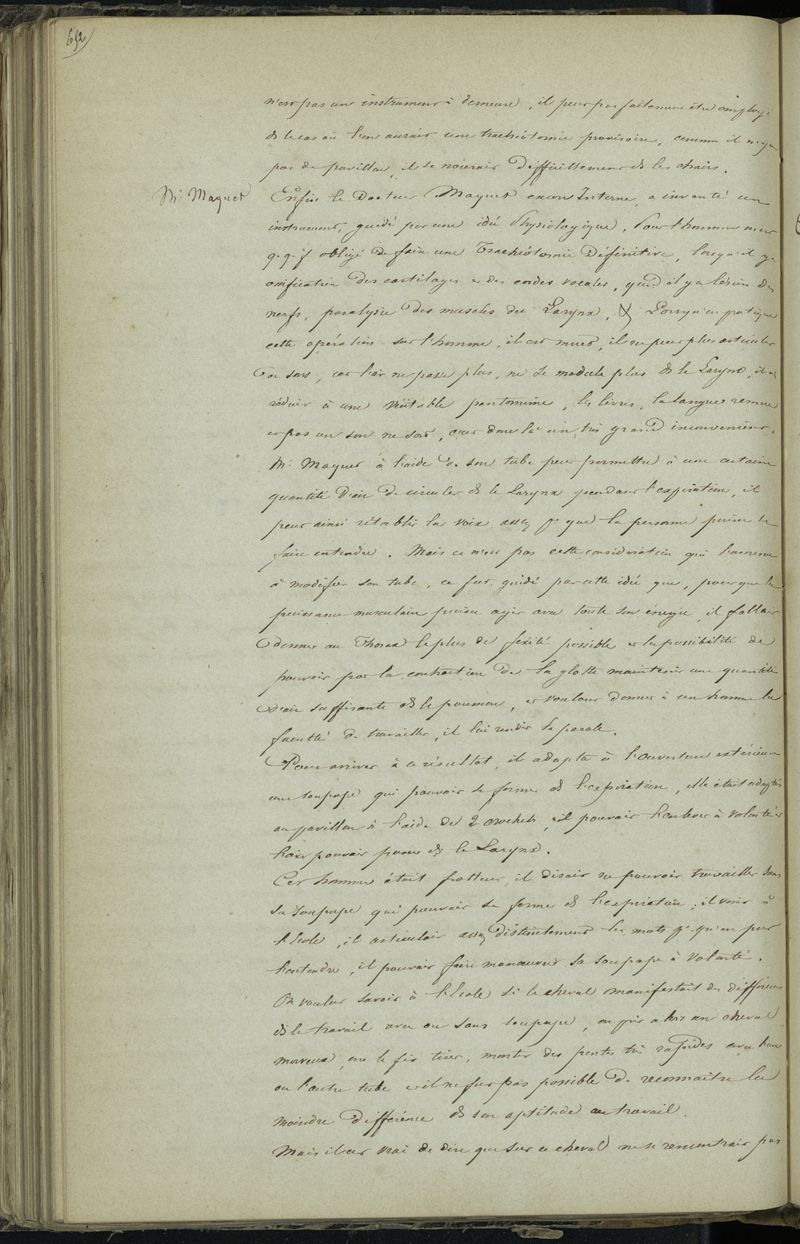 692
n'est pas un instrument à demeure, il peut parfaitement être employé
ds le cas où l'on aurait une trachéotomie provisoire, comme il n'y a
pas de pavillon, il se nouerait difficilement ds les chairs.
Mr Maquet
Enfin le Docteur Maquet encore Interne, a inventé un
instrument, guidé par une idée Physiologique. Pour l'homme on est
qq.f. obligé de faire une Trachéotomie Définitive, lorsqu'il y a
ossification des cartilages et des cordes vocales, quand il y a lésion des
nerfs, paralysie des muscles du Larynx, & Lorsqu'on pratique
cette opération sur l'homme, il est muet, il ne peut plus articuler
un son, car l'air ne passe plus, ne se module plus ds le Larynx, il est
réduit à une véritable pantomime, les lèvres, la langue remue
et pas un son ne sort, c'est donc là un très grand inconvénient.
Mr Maquet à l'aide de son tube peut permettre à une certaine
quantité d'air de circuler ds le Larynx pendant l'expiration, il
peut ainsi rétablir la voix assez pr que la personne puisse se
faire entendre. Mais ce n'est pas cette considération qui l'amena
à modifier son tube, ce fut guidé par cette idée que, pour que la
puissance musculaire puisse agir avec toute son énergie, il fallait
donner au Thorax le plus de fixité possible et la possibilité de
pouvoir par la contraction de la glotte maintenir une quantité
d'air suffisante ds le poumon, et voulant donner à un homme la
faculté de travailler, il lui rendit la parole.
Pour arriver à ce résultat, il adapta à l'ouverture extérieure
une soupape qui pouvait se fermer ds l'expiration, elle était adaptée
au pavillon à l'aide de 2 crochets, il pouvait l'enlever à volonté et
l'air pouvait passer ds le Larynx.
Cet homme était frotteur, il disait ne pouvoir travailler sans
sa soupape qui pouvait se fermer ds l'expiration; il vint à
l'Ecole, il articulait assez distinctement les mots pr qu'on put
l'entendre, il pouvait faire manœuvrer sa soupape à volonté.
On voulut savoir à l'Ecole si le cheval manifestait des différences
ds le travail avec ou sans soupape, on prit un cheval
morveux, on le fit tirer, monter des pentes très rapides avec l'un
ou l'autre tube et il ne fut pas possible de reconnaître la
moindre différence ds son aptitude au travail.
Mais il est vrai de dire que sur ce cheval ne se rencontrait pas